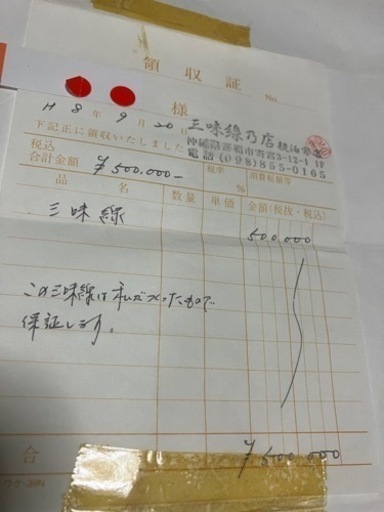 領収証
No.
様
H 8年9月20日
三味線乃店
下記正に領収いたしました
電話(098)855-0165
税込
合計金額 ¥500,000-
税率 % 消費税額等
品名 数量 単価 金額(税抜・税込)
三味線 500,000
この三味線は私がつくったもので
保証します。
合 ¥500,000